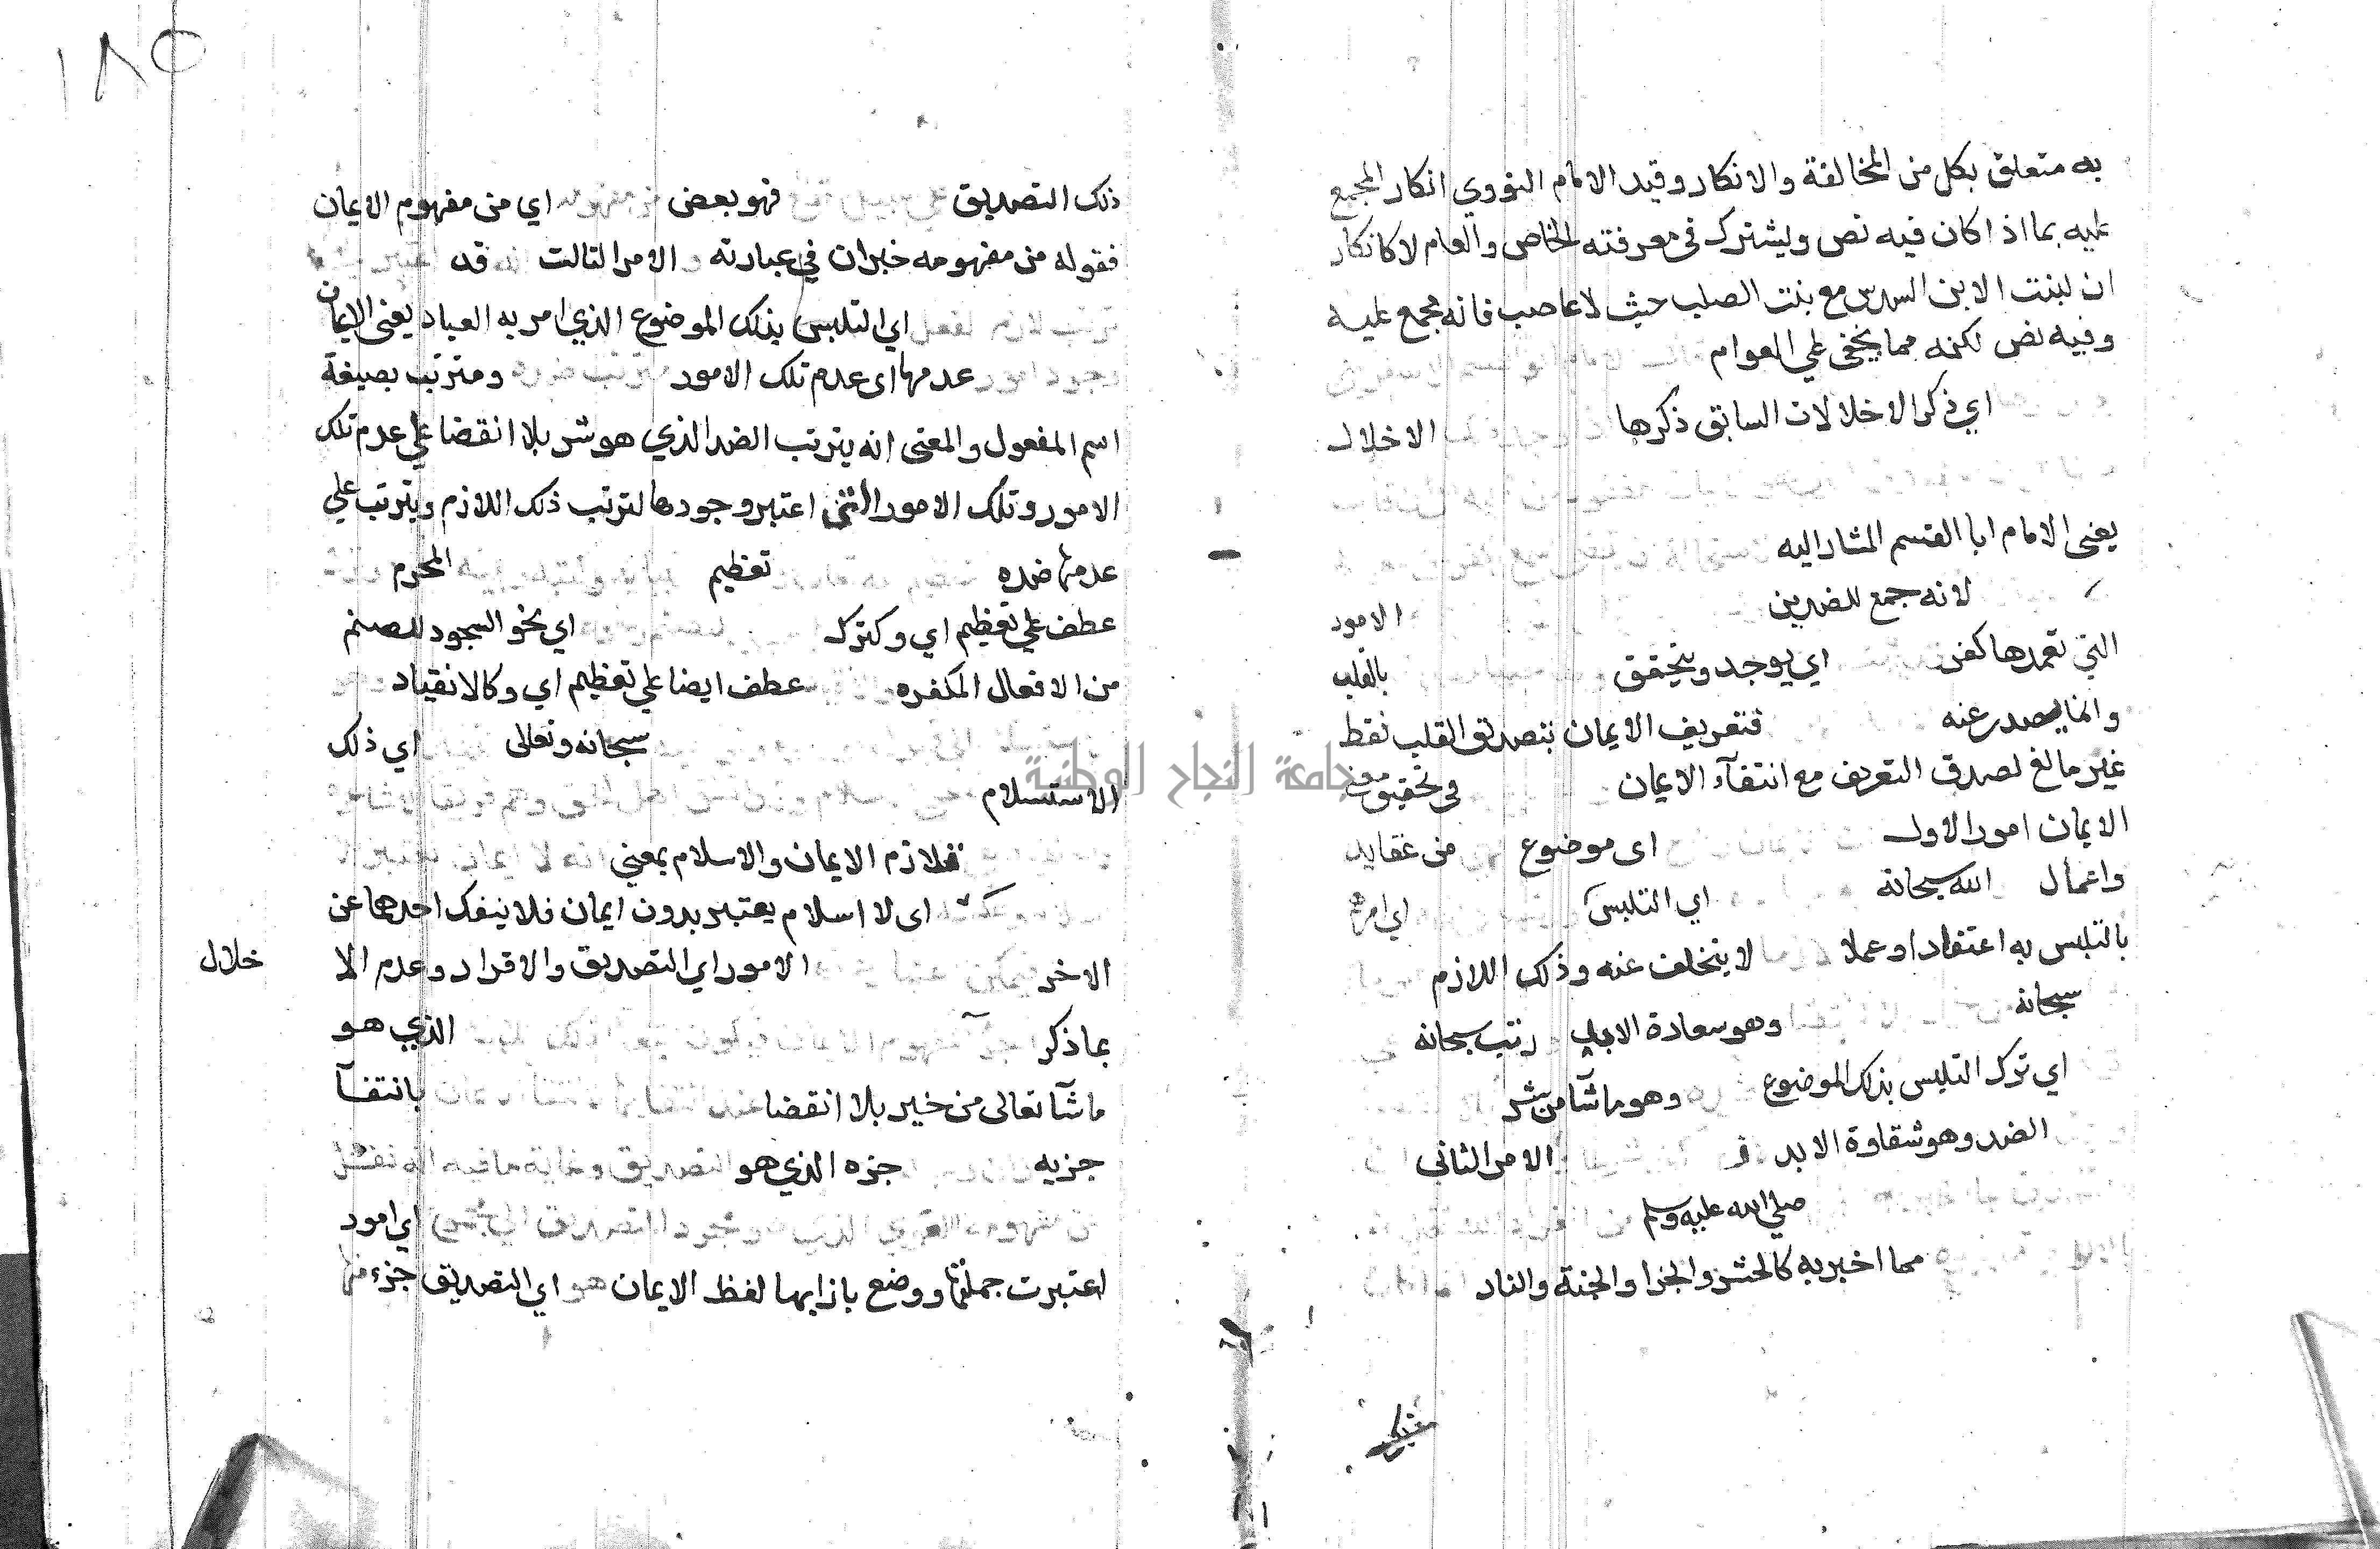 به متعلق بكل من المخالفة والانكار وقيد الامام النووي انكار المجمع
عليه بما اذا كان فيه نص ويشترك في معرفته الخاص والعام لا كانكار
ان لبنت الابن السدس مع بنت الصلب حيث لا عاصب فانه مجمع عليه
وفيه نص لكنه مما يخفى على العوام
اي ذكر الاخلالات السابق ذكرها الاخلال
يعني الامام ابا القسم المشار اليه
لانه جمع للضدين الامور
التي تعمدها كفر اي يوجد ويتحقق بالقلب
وانما يصدر عنه فتعريف الايمان بتصديق القلب فقط
غير مانع لصدق التعريف مع انتفآء الايمان في تحقيق
الايمان امور الاول اى موضوع من عقايد
واعمال الله سبحانه اي التلبس
بالتلبس به اعتقادا وعملا لا يتخلف عنه وذلك اللازم
سبحانه وهو سعادة الابد رتب سبحانه
اي ترك التلبس بذلك الموضوع وهو ما شآ من شر
الضد وهو شقاوة الابد الامر الثاني
صلى الله عليه وسلم
مما اخبر به كالحشر والجزا والجنة والنار
١٨٥
ذلك التصديق فهو بعض اي من مفهوم الايمان
فقوله من مفهومه خبران في عبارته والامر الثالث قد
اي التلبس بذلك الموضوع الذي امر به العباد يعني الايمان
عدمها اى عدم تلك الامور ومترتب بصيغة
اسم المفعول والمعنى انه يترتب الضد الذي هو شر بلا انقضا على عدم تلك
الامور وتلك الامور التي اعتبر وجودها لترتب ذلك اللازم ويترتب على
عدمها ضده تعظيم المحرم
عطف على تعظيم اي وكترك اي نحو السجود للصنم
من الافعال المكفره عطف ايضا على تعظيم اي وكالانقياد
سبحانه وتعالى اي ذلك
الاستسلام
جامعة النجاح الوطنية
فتلازم الايمان والاسلام بمعنى
اى لا اسلام يعتبر بدون ايمان فلا ينفك احدهما عن
الاخر الامور اي التصديق والاقرار وعدم الا خلال
بما ذكر الذي هو
ما شآ تعالى من خير بلا انقضا بانتفآ
جزيه جزه الذي هو
اي امور
اعتبرت جملتها ووضع بازايها لفظ الايمان هو اي التصديق جزء منها